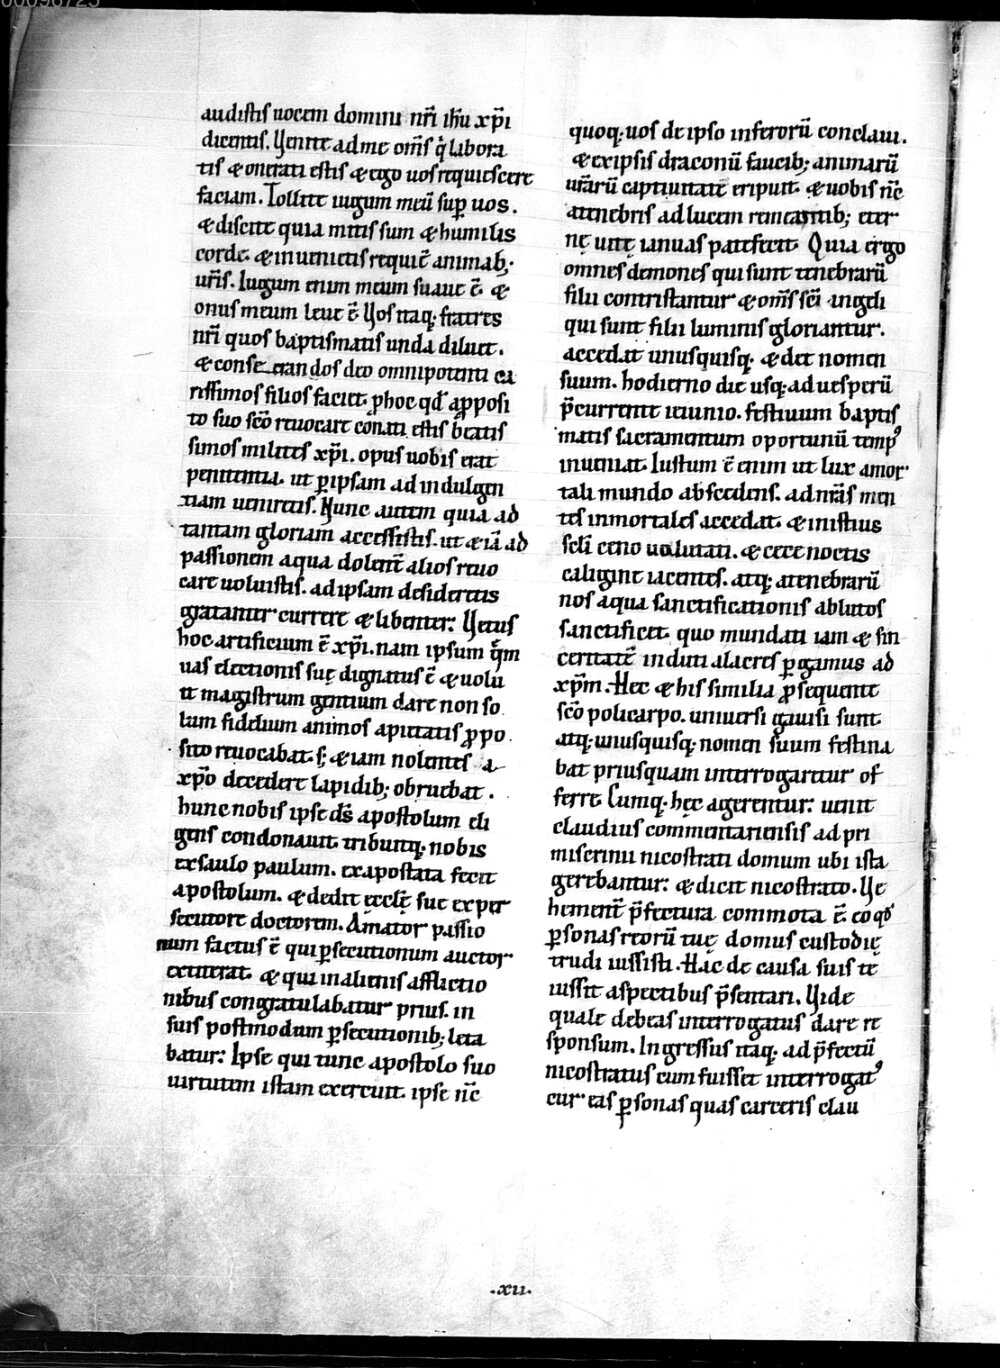 00098725
audistis uocem domini nr̄i ih̄u xp̄i
dicentis. Venite ad me om̄s q̇ labora
tis & onerati estis & ego uos requiescere
faciam. Tollite iugum meū sup̄ uos.
& discite quia mitis sum & humilis
corde. & inuenietis requiē animab;
ur̄is. Iugum enim meum suaue ē. &
onus meum leue ē. Vos itaq; fratres
nr̄i quos baptismatis unda diluet.
& consecrandos deo omnipotenti ca
rissimos filios faciet. ꝑ hoc qd̄ a ꝓposi
to suo sc̄o reuocare conati estis beatis
simos milites xp̄i. opus uobis erat
penitentia. ut ꝑ ipsam ad indulgen
tiam ueniretis. Nunc autem quia ad
tantam gloriam accessistis. ut & iā ad
passionem aqua dolent̄ alios reuo
care uoluistis. ad ipsam desideretis
gratanter currere & libenter: Vetus
hoc artificium ē xp̄i. nam ipsum q̄m
uas electionis suę dignatus ē & uolu
it magistrum gentium dare non so
lum fidelium animos a pietatis ꝓpo
sito reuocabat. s; & iam nolentes a
xp̄o decedere lapidib; obruebat.
hunc nobis ipse ds̄ apostolum eli
gens condonauit. tribuitq; nobis
ex saulo paulum. ex apostata fecit
apostolum. & dedit ęcclę̄ suę ex per
secutore doctorem. Amator passio
num factus ē qui ꝑsecutionum auctor
extiterat. & qui in alienis afflictio
nibus congratulabatur prius. in
suis postmodum ꝑsecutionib; leta
batur: Ipse qui tunc apostolo suo
uirtutem istam exercuit. ipse nc̄
quoq; uos de ipso inferorū conclaui.
& ex ipsis draconū faucib; animarū
ur̄arū captiuitatē eripuit. & uobis nc̄
a tenebris ad lucem remeantib; eter
nę uitę ianuas patefecit. Quia ergo
omnes demones qui sunt tenebrarū
filii contristantur & om̄s sc̄i angeli
qui sunt filii luminis gloriantur.
accedat unusquisq; & det nomen
suum. hodierno die usq; ad uesperū
p̄currente ieiunio. festiuum baptis
matis sacramentum oportunū temp⁹
inueniat. Iustum ē enim ut lux amor
tali mundo abscedens. ad nr̄as men
tes inmortales accedat. & in istius
sc̄li ceno uolutati. & cece noctis
caligine iacentes. atq; a tenebrarū
nos aqua sanctificationis ablutos
sanctificet. quo mundati iam & sin
ceritatē induti alacres ꝑgamus ad
xp̄m. Hec & his similia ꝓsequente
sc̄o policarpo. uniuersi gauisi sunt.
atq; unusquisq; nomen suum festina
bat priusquam interrogaretur of
ferre. Cumq; hęc agerentur: uenit
claudius commentariensis ad pri
miscrinii nicostrati domum ubi ista
gerebantur: & dicit nicostrato. Ve
hement̄ p̄fectura commota ē. eo qd̄
ꝑsonas reorū tuę domus custodię
trudi iussisti. Hac de causa suis te
iussit aspectibus p̄sentari. Vide
quale debeas interrogatus dare re
sponsum. Ingressus itaq; ad p̄fectū
nicostratus cum fuisset interrogat⁹
cur eas ꝑsonas quas carceris clau
.xii.